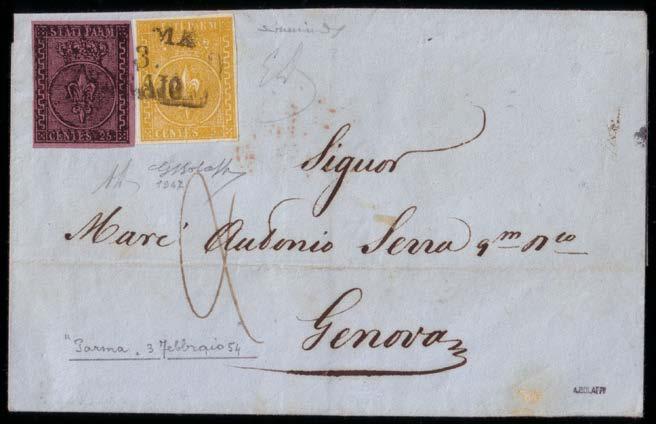 STATI PARM
CENTES. 25
STATI PARM
CENTES. 5
MA
3.
AIO
GBolaffi
1947
Signor
Marc' Antonio Serra q.m n.co
Genova
"Parma, 3 Febbraio 54"
A.BOLAFFI